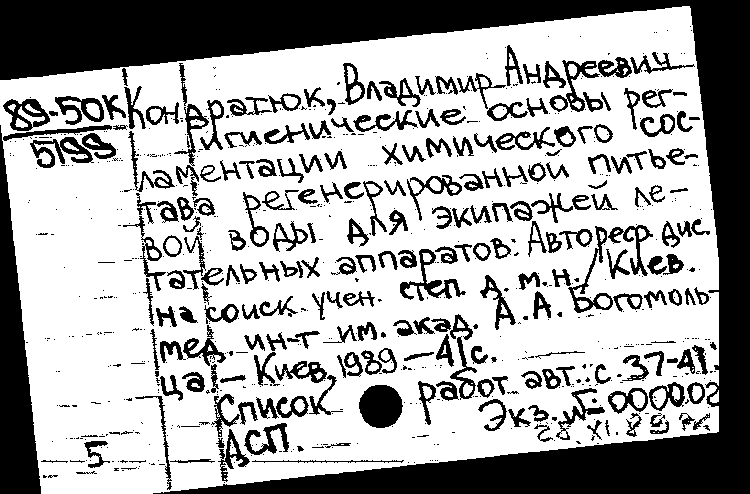 89-50К
5199
Кондратюк, Владимир Андреевич
Гигиенические основы рег-
ламентации химического сос-
тава регенерированной питье-
вой воды для экипажей ле-
тательных аппаратов: Автореф. дис.
на соиск. учен. степ. д.м.н./Киев.
мед. ин-т им. акад. А.А. Богомоль-
ца. — Киев, 1989. — 41с.
Список работ авт.: с. 37-41.
Экз. № 000002
ДСП.
28.XI.89
5